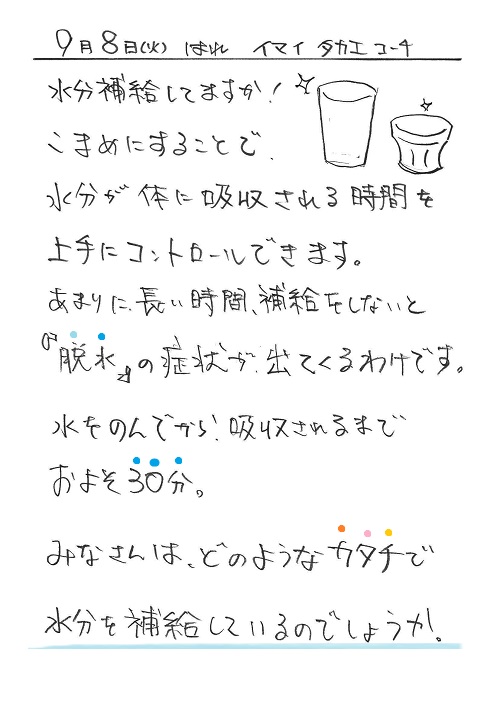 9月8日(火) はれ イマイ タカエ コーチ
水分補給してますか!
こまめにすることで、
水分が体に吸収される時間を
上手にコントロールできます。
あまりに、長い時間、補給をしないと
『脱水』の症状が、出てくるわけです。
水をのんでから、吸収されるまで
およそ30分。
みなさんは、どのようなカタチで
水分を補給しているのでしょうか。